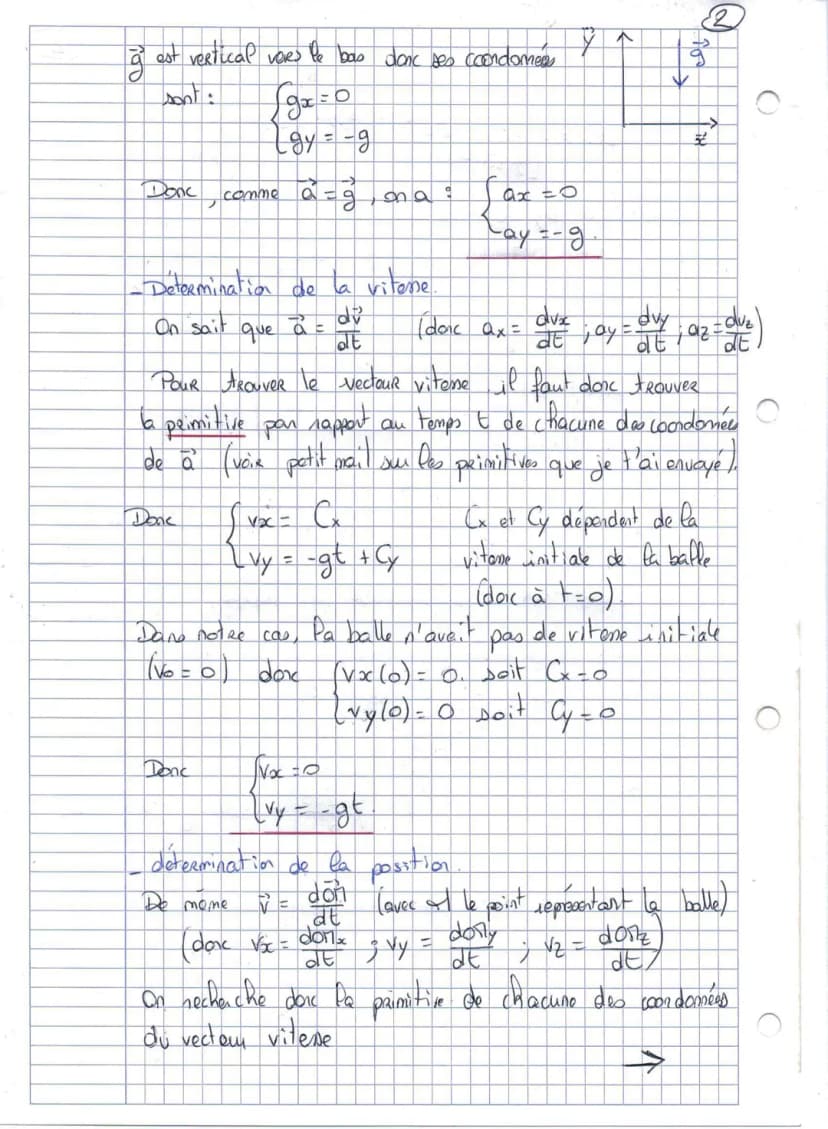 2
g⃗ est vertical vers le bas donc ses coordonnées
y⃗
g⃗
sont : { gx = 0
{ gy = -g
x⃗
Donc, comme a⃗ = g⃗, on a : { ax = 0
{ ay = -g.
- Détermination de la vitesse.
On sait que a⃗ = dv⃗/dt (donc ax = dvx/dt ; ay = dvy/dt ; az = dvz/dt)
Pour trouver le vecteur vitesse, il faut donc trouver
la primitive par rapport au temps t de chacune des coordonnées
de a⃗ (voir petit mail sur les primitives que je t'ai envoyé).
Donc { vx = Cx
{ vy = -gt + Cy
Cx et Cy dépendent de la
vitesse initiale de la balle
(donc à t=0).
Dans notre cas, la balle n'avait pas de vitesse initiale
(v0 = 0) donc { vx(0) = 0. soit Cx = 0
{ vy(0) = 0 soit Cy = 0
Donc { vx = 0
{ vy = -gt.
- détermination de la position.
De même v⃗ = dOM⃗/dt (avec M le point représentant la balle)
(donc vx = dOMx/dt ; vy = dOMy/dt ; vz = dOMz/dt)
On recherche donc la primitive de chacune des coordonnées
du vecteur vitesse
→